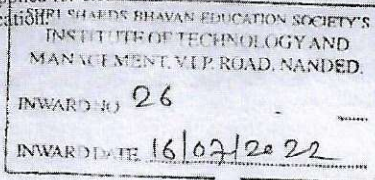 SHRI SHARDA BHAVAN EDUCATION SOCIETY'S
INSTITUTE OF TECHNOLOGY AND
MANAGEMENT, V.I.P. ROAD, NANDED.
INWARD NO 26
INWARD DATE 16/07/2022